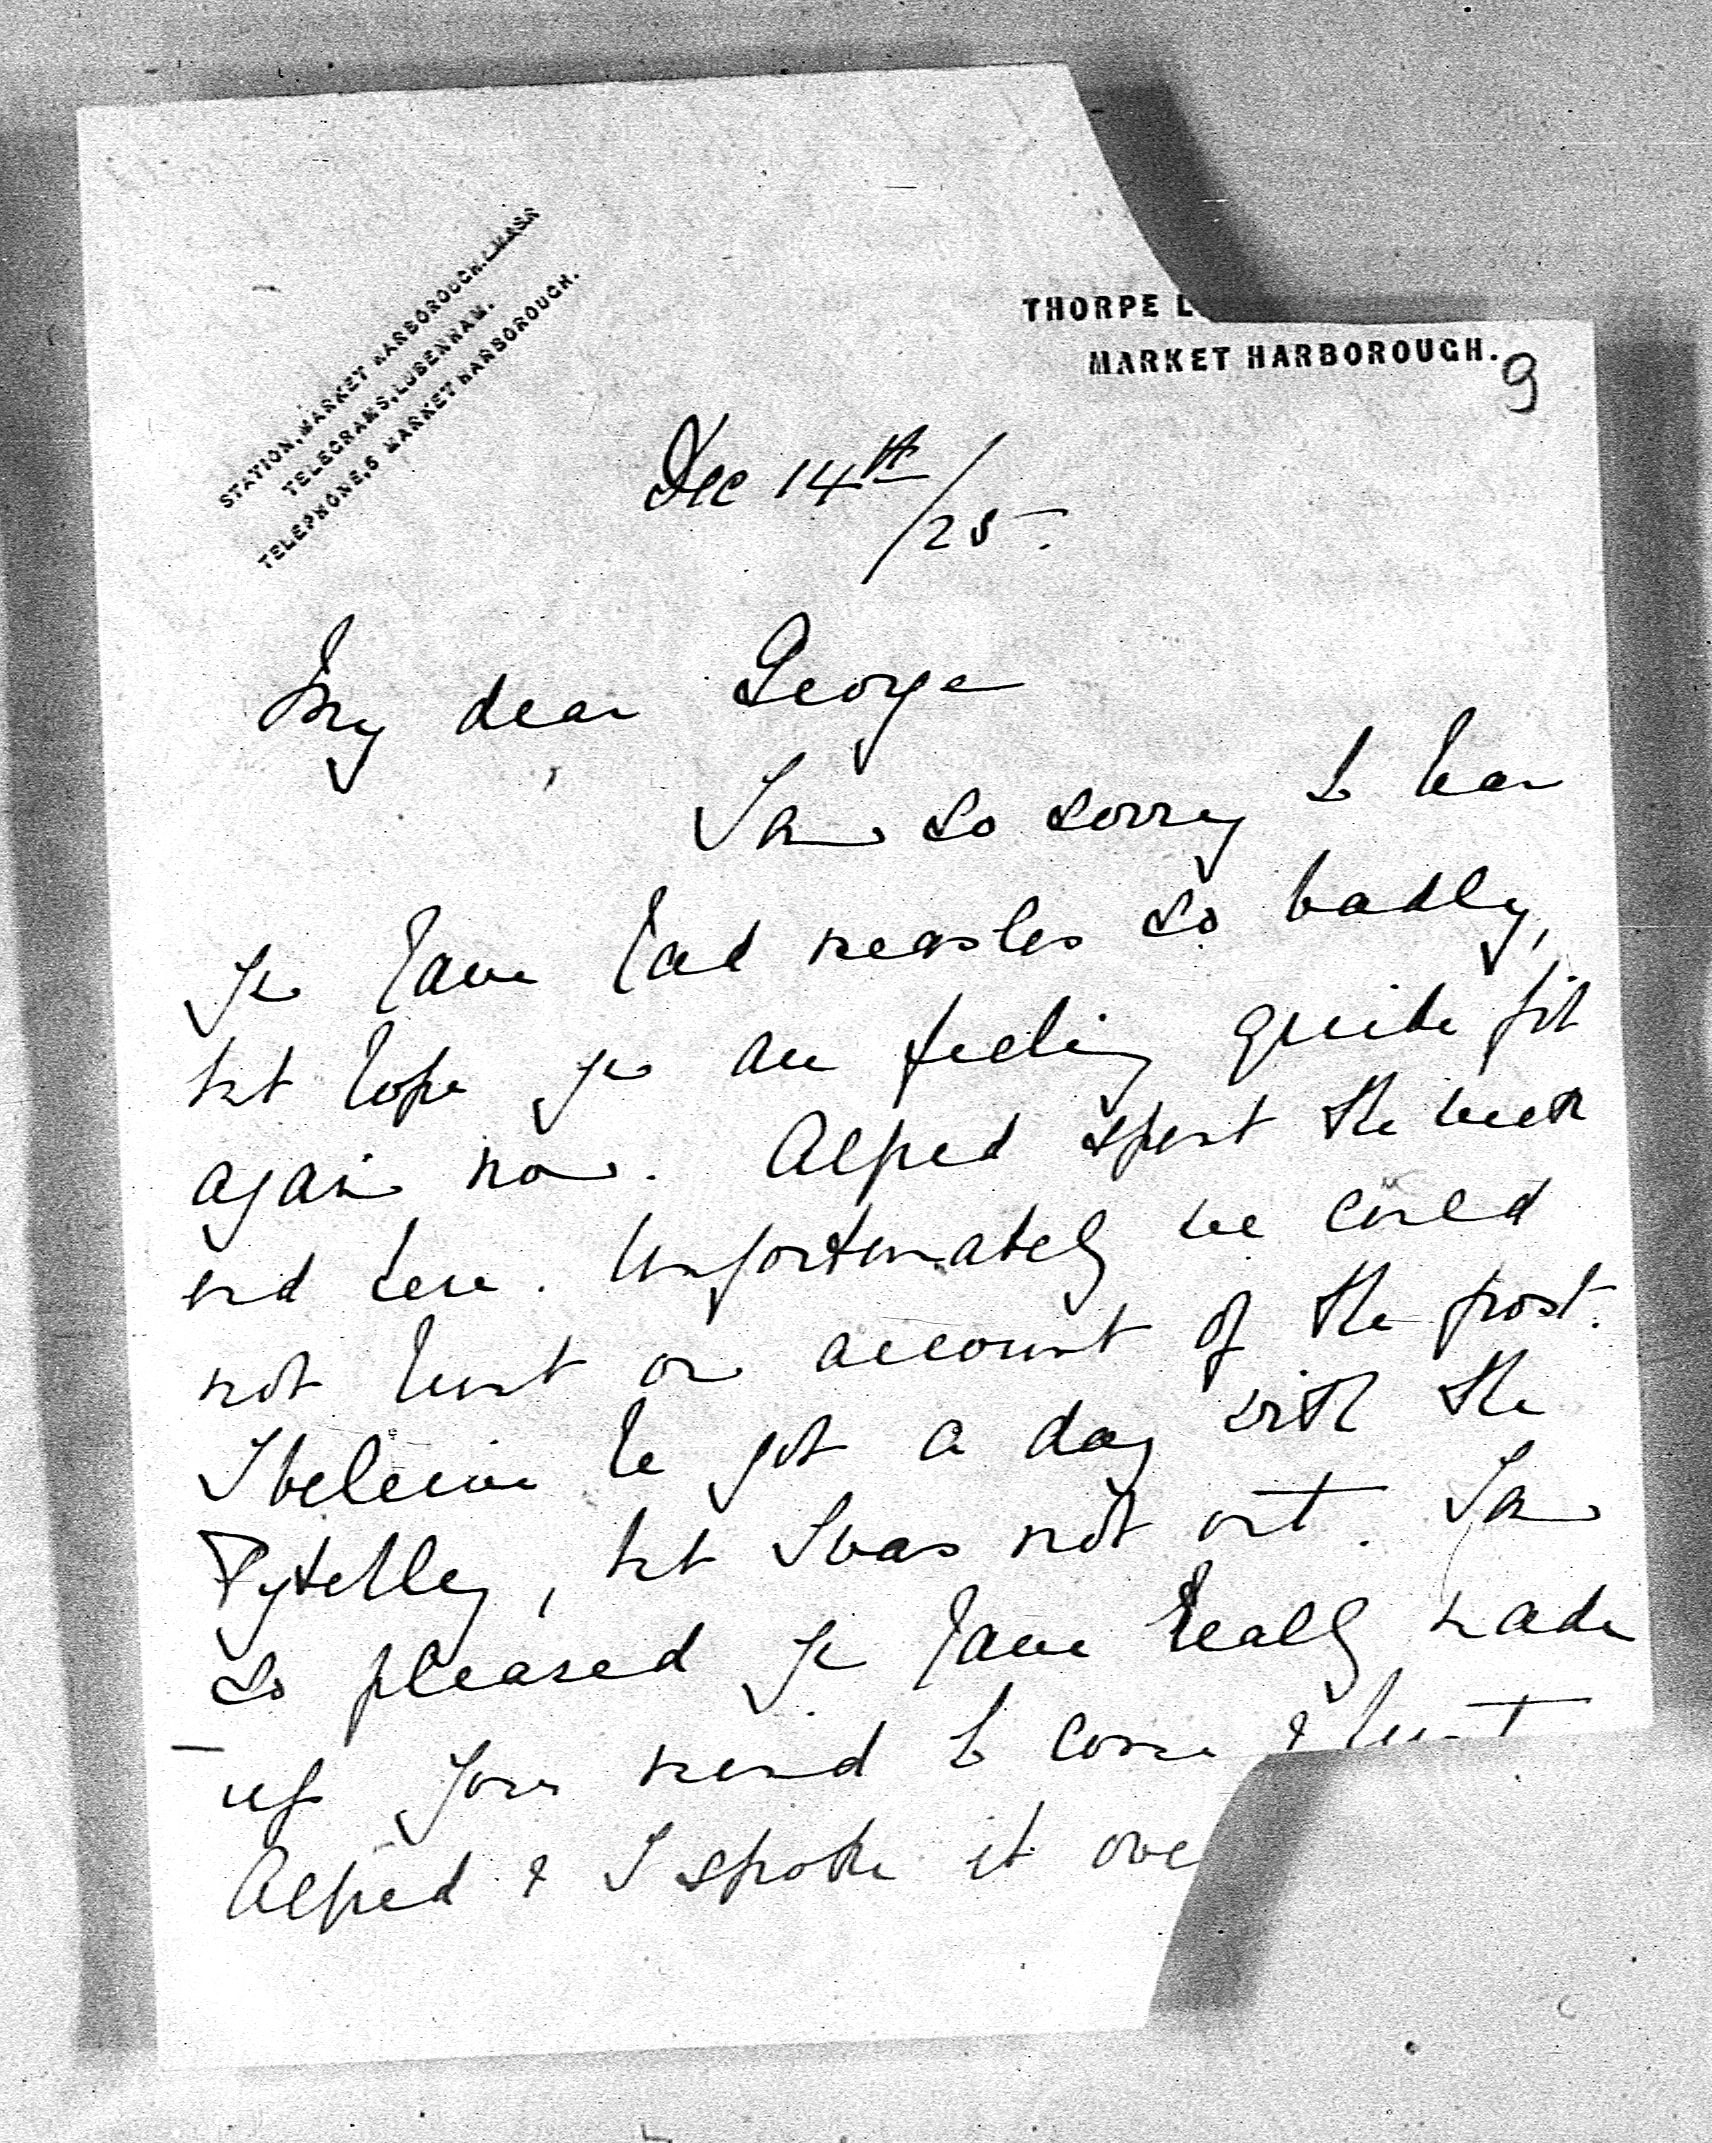 STATION, MARKET HARBOROUGH. L.M.&S.R
TELEGRAMS, LUBENHAM.
TELEPHONE, 6 MARKET HARBOROUGH.
THORPE L
MARKET HARBOROUGH.
9
Dec 14th/25.
My dear George
I am so sorry to hear
you have had measles so badly,
but hope you are feeling quite fit
again now. Alfred spent the week
end here. Unfortunately we could
not hunt on account of the frost.
I beleive he got a day with the
Pytchley, but I was not out. I am
so pleased you have really made
up your mind to come & hunt
Alfred & I spoke it ove